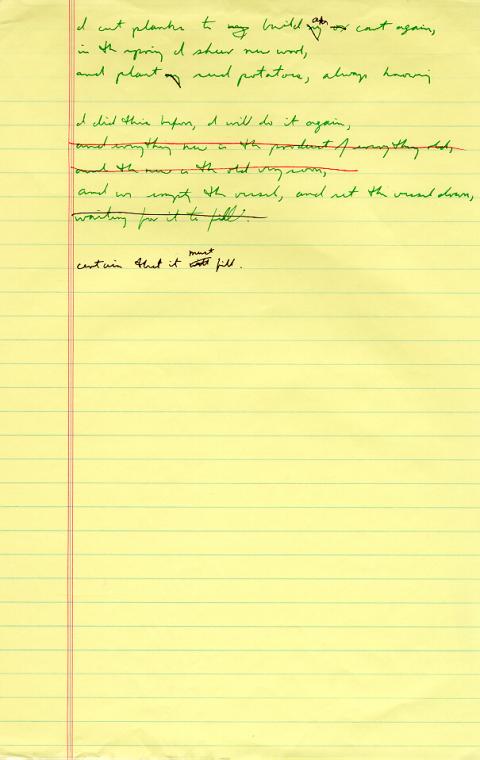 I cut planks to my build my an ox cart again,
in the spring I shear new wool,
and plant my seed potatoes, always knowing
I did this before, I will do it again,
and everything new is the product of everything old,
and the new is the old very soon,
and we empty the vessel, and set the vessel down,
waiting for it to fill.
certain that it must fill.